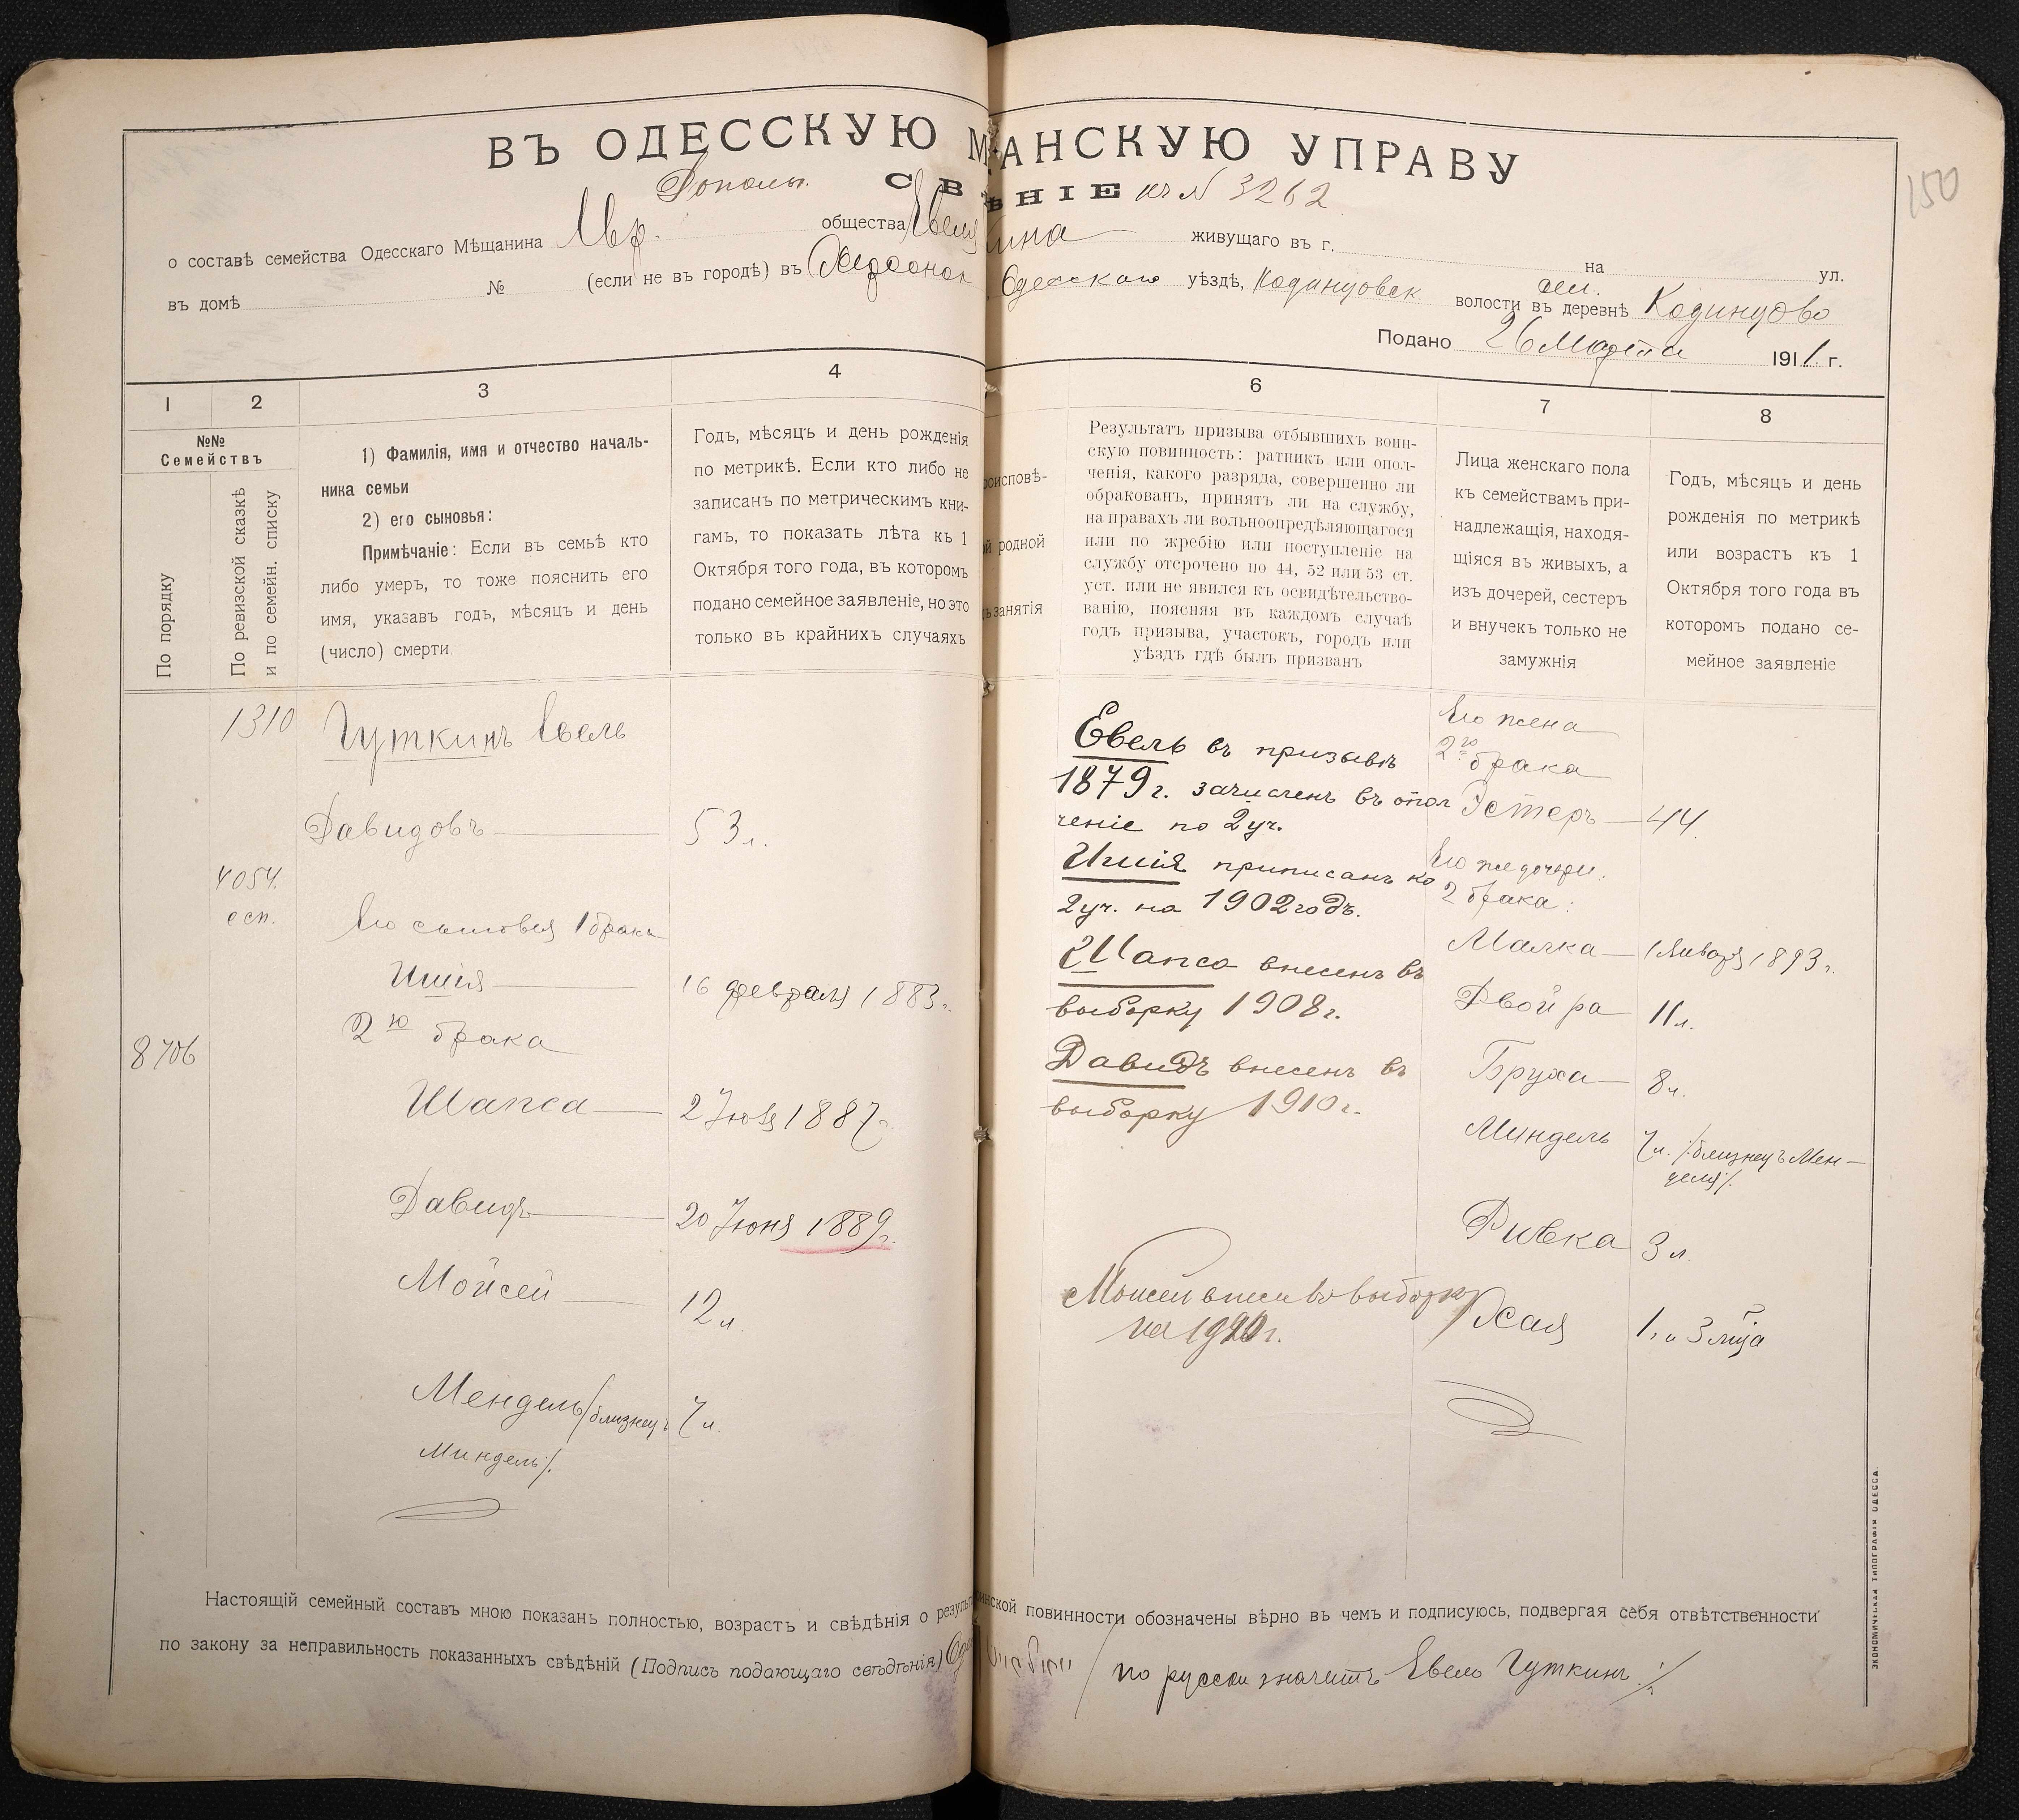 150
ВЪ ОДЕССКУЮ М АНСКУЮ УПРАВУ
Дополн. СВ ѢНІЕ къ № 3262
о составѣ семейства Одесскаго Мѣщанина Евр. общества Евеля кина живущаго въ г. на ул.
въ домѣ № (если не въ городѣ) въ Херсонск Одесскаго уѣздѣ, волости въ деревнѣ сел. Кодинцово
Подано 26 Марта 1911 г.
1 2 3 4 6 7 8
№№
Семействъ
По порядку
По ревизской сказкѣ
и по семейн. списку
1) Фамилія, имя и отчество началь-
ника семьи
2) его сыновья:
Примѣчаніе: Если въ семьѣ кто
либо умеръ, то тоже пояснить его
имя, указавъ годъ, мѣсяцъ и день
(число) смерти.
Годъ, мѣсяцъ и день рожденія
по метрикѣ. Если кто либо не
записанъ по метрическимъ кни-
гамъ, то показать лѣта къ 1
Октября того года, въ которомъ
подано семейное заявленіе, но это
только въ крайнихъ случаяхъ
роисповѣ-
ой родной
ъ занятія
Результатъ призыва отбывшихъ воин-
скую повинность: ратникъ или опол-
ченія, какого разряда, совершенно ли
обракованъ, принятъ ли на службу,
на правахъ ли вольноопредѣляющагося
или по жребію или поступленіе на
службу отсрочено по 44, 52 или 53 ст.
уст. или не явился къ освидѣтельство-
ванію, поясняя въ каждомъ случаѣ
годъ призыва, участокъ, городъ или
уѣздъ гдѣ былъ призванъ
Лица женскаго пола
къ семействамъ при-
надлежащія, находя-
щіяся въ живыхъ, а
изъ дочерей, сестеръ
и внучекъ только не
замужнія
Годъ, мѣсяцъ и день
рожденія по метрикѣ
или возрастъ къ 1
Октября того года въ
которомъ подано се-
мейное заявленіе
8706
1310
4054.
есп.
Гуткинъ Евель
Давидовъ — 53 л.
Его сыновья 1 брака
Ишія — 16 февраля 1883 г.
2го брака
Шапса — 2 1887 г.
Давидъ — 20 Іюня 1889 г.
Мойсей — 12 л.
Мендель /близнецъ 7 л.
Миндель/.
Евель въ призывѣ
1879 г. зачисленъ въ опол
ченіе по 2 уч.
Ишія приписанъ ко
2 уч. на 1902 годъ.
Шапса внесенъ въ
выборку 1908 г.
Давидъ внесенъ въ
выборку 1910 г.
Моисей внесен во выборку
на 1920 г.
Его жена
2го брака
Эстеръ — 44.
Его же дочери.
2 брака:
Малка — 1 Января 1893 г.
Двойра 11 л.
Бруха — 8 л.
Миндель 7 л. /близнецъ Мен-
деля/.
Ривка 3 л.
Хая 1 г. и 3 м-ца
Настоящій семейный составъ мною показанъ полностью, возрастъ и свѣдѣнія о результ инской повинности обозначены вѣрно въ чемъ и подписуюсь, подвергая себя отвѣтственности
по закону за неправильность показанныхъ свѣдѣній (Подпись подающаго свѣдѣнія) / по русски значитъ Евель Гуткинъ /
ЭКОНОМИЧЕСКАЯ ТИПОГРАФІЯ ОДЕССА.